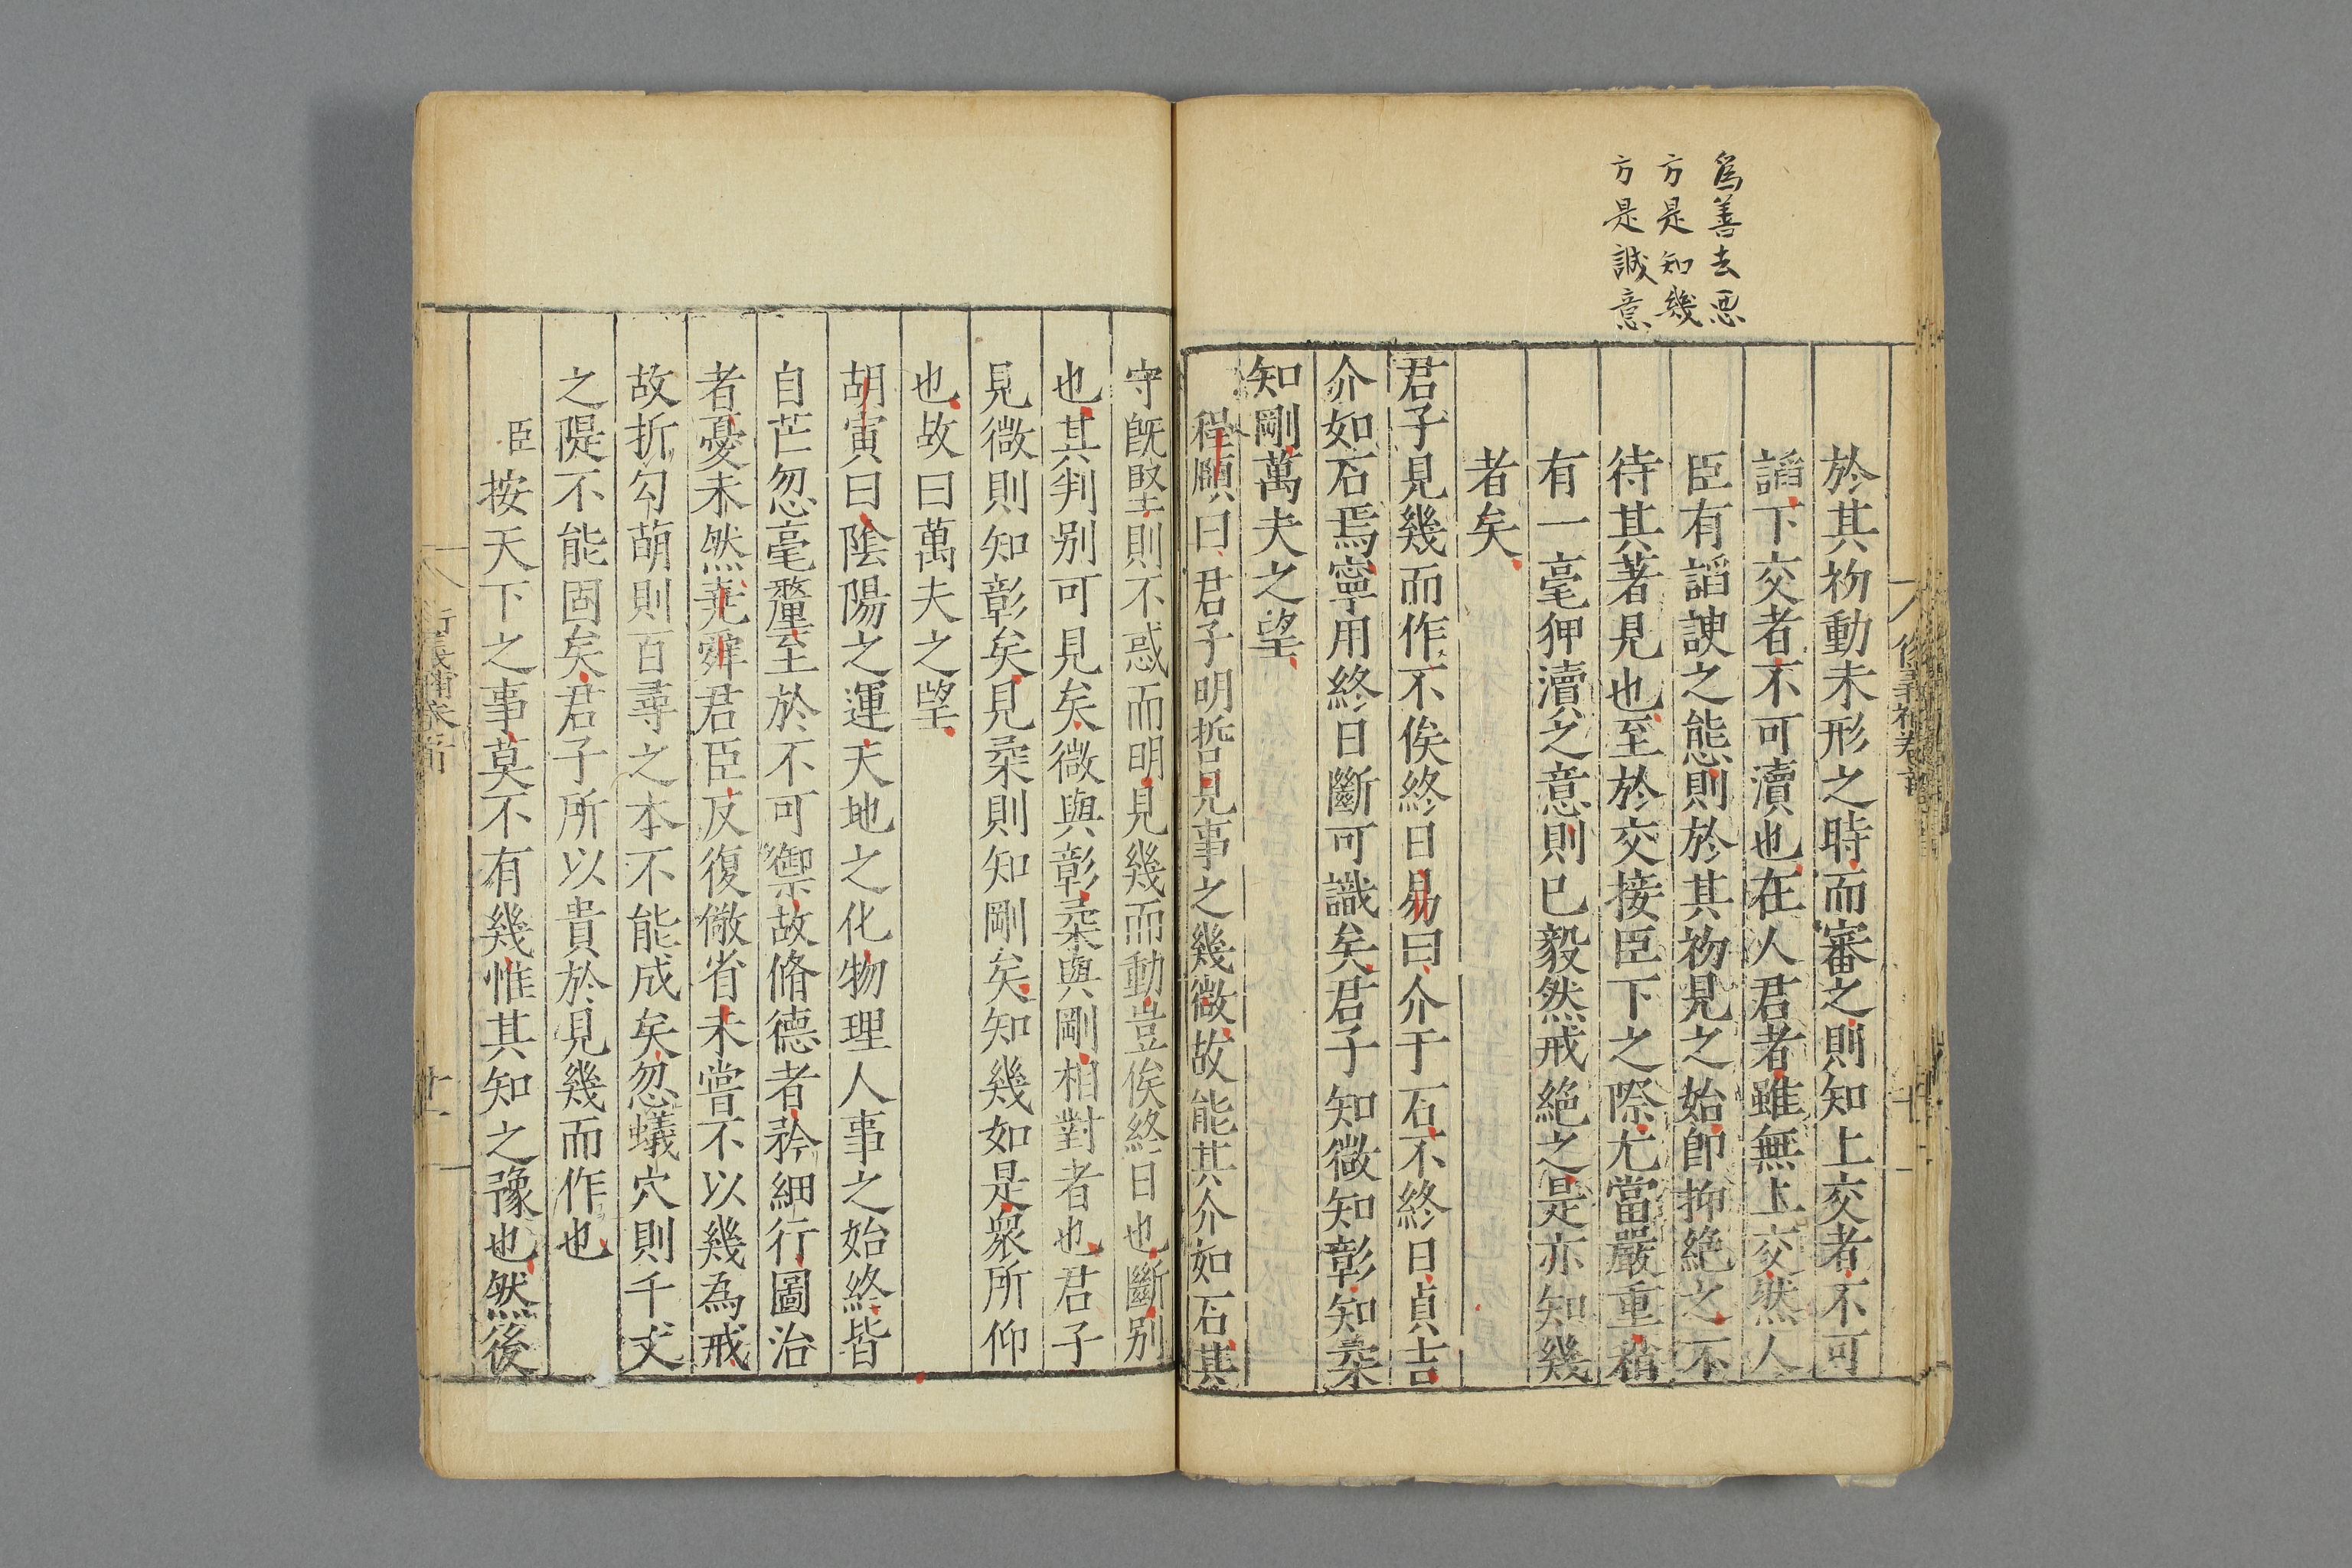 為善去惡
方是知幾
方是誠意
於其初動未形之時而審之則知上交者不可
謟下交者不可瀆也在人君者雖無上交然人
臣有謟諛之態則於其初見之始卽抑絶之不
待其著見也至於交接臣下之際尤當嚴重稍
有一毫狎瀆之意則已毅然戒絶之是亦知幾
者矣
君子見幾而作不俟終日易曰介于石不終日貞吉
介如石焉寧用終日斷可識矣君子知微知彰知柔
知剛萬夫之望
程頤曰君子明哲見事之幾微故能其介如石其
守旣堅則不惑而明見幾而動豈俟終日也斷别
也其判别可見矣微與彰柔與剛相對者也君子
見微則知彰矣見柔則知剛矣知幾如是衆所仰
也故曰萬夫之望
胡寅曰陰陽之運天地之化物理人事之始終皆
自芒忽毫釐至於不可禦故脩德者矜細行圖治
者憂未然堯舜君臣反復儆省未嘗不以幾為戒
故折勾萌則百尋之本不能成矣忽蟻穴則千丈
之隄不能固矣君子所以貴於見幾而作也
臣按天下之事莫不有幾惟其知之豫也然後
衍義補卷首
十一